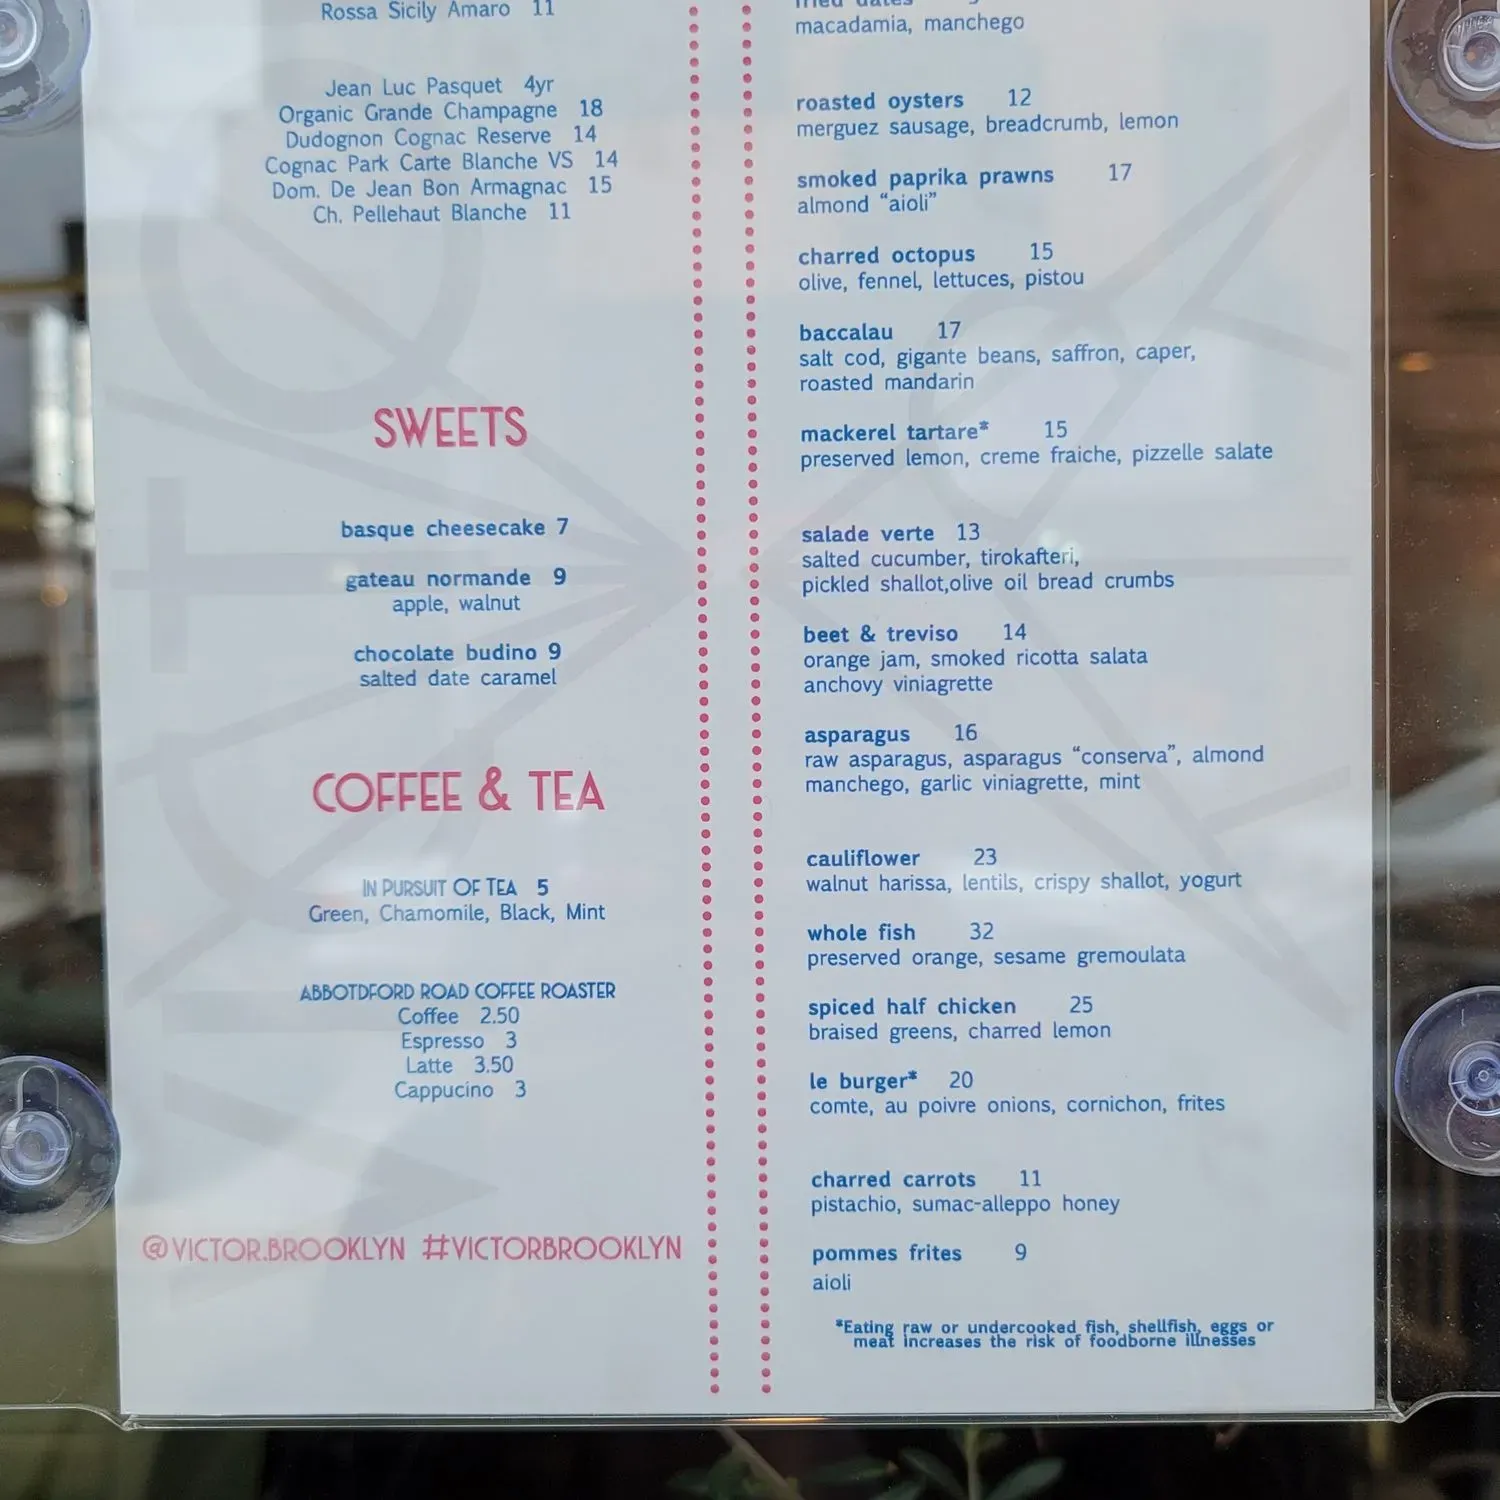 Rossa Sicily Amaro 11
Jean Luc Pasquet 4yr
Organic Grande Champagne 18
Dudognon Cognac Reserve 14
Cognac Park Carte Blanche VS 14
Dom. De Jean Bon Armagnac 15
Ch. Pellehaut Blanche 11
SWEETS
basque cheesecake 7
gateau normande 9
apple, walnut
chocolate budino 9
salted date caramel
COFFEE & TEA
IN PURSUIT OF TEA 5
Green, Chamomile, Black, Mint
ABBOTDFORD ROAD COFFEE ROASTER
Coffee 2.50
Espresso 3
Latte 3.50
Cappucino 3
@VICTOR.BROOKLYN #VICTORBROOKLYN
fried dates
macadamia, manchego
roasted oysters 12
merguez sausage, breadcrumb, lemon
smoked paprika prawns 17
almond “aioli”
charred octopus 15
olive, fennel, lettuces, pistou
baccalau 17
salt cod, gigante beans, saffron, caper,
roasted mandarin
mackerel tartare* 15
preserved lemon, creme fraiche, pizzelle salate
salade verte 13
salted cucumber, tirokafteri,
pickled shallot,olive oil bread crumbs
beet & treviso 14
orange jam, smoked ricotta salata
anchovy viniagrette
asparagus 16
raw asparagus, asparagus “conserva”, almond
manchego, garlic viniagrette, mint
cauliflower 23
walnut harissa, lentils, crispy shallot, yogurt
whole fish 32
preserved orange, sesame gremoulata
spiced half chicken 25
braised greens, charred lemon
le burger* 20
comte, au poivre onions, cornichon, frites
charred carrots 11
pistachio, sumac-alleppo honey
pommes frites 9
aioli
*Eating raw or undercooked fish, shellfish, eggs or
meat increases the risk of foodborne illnesses